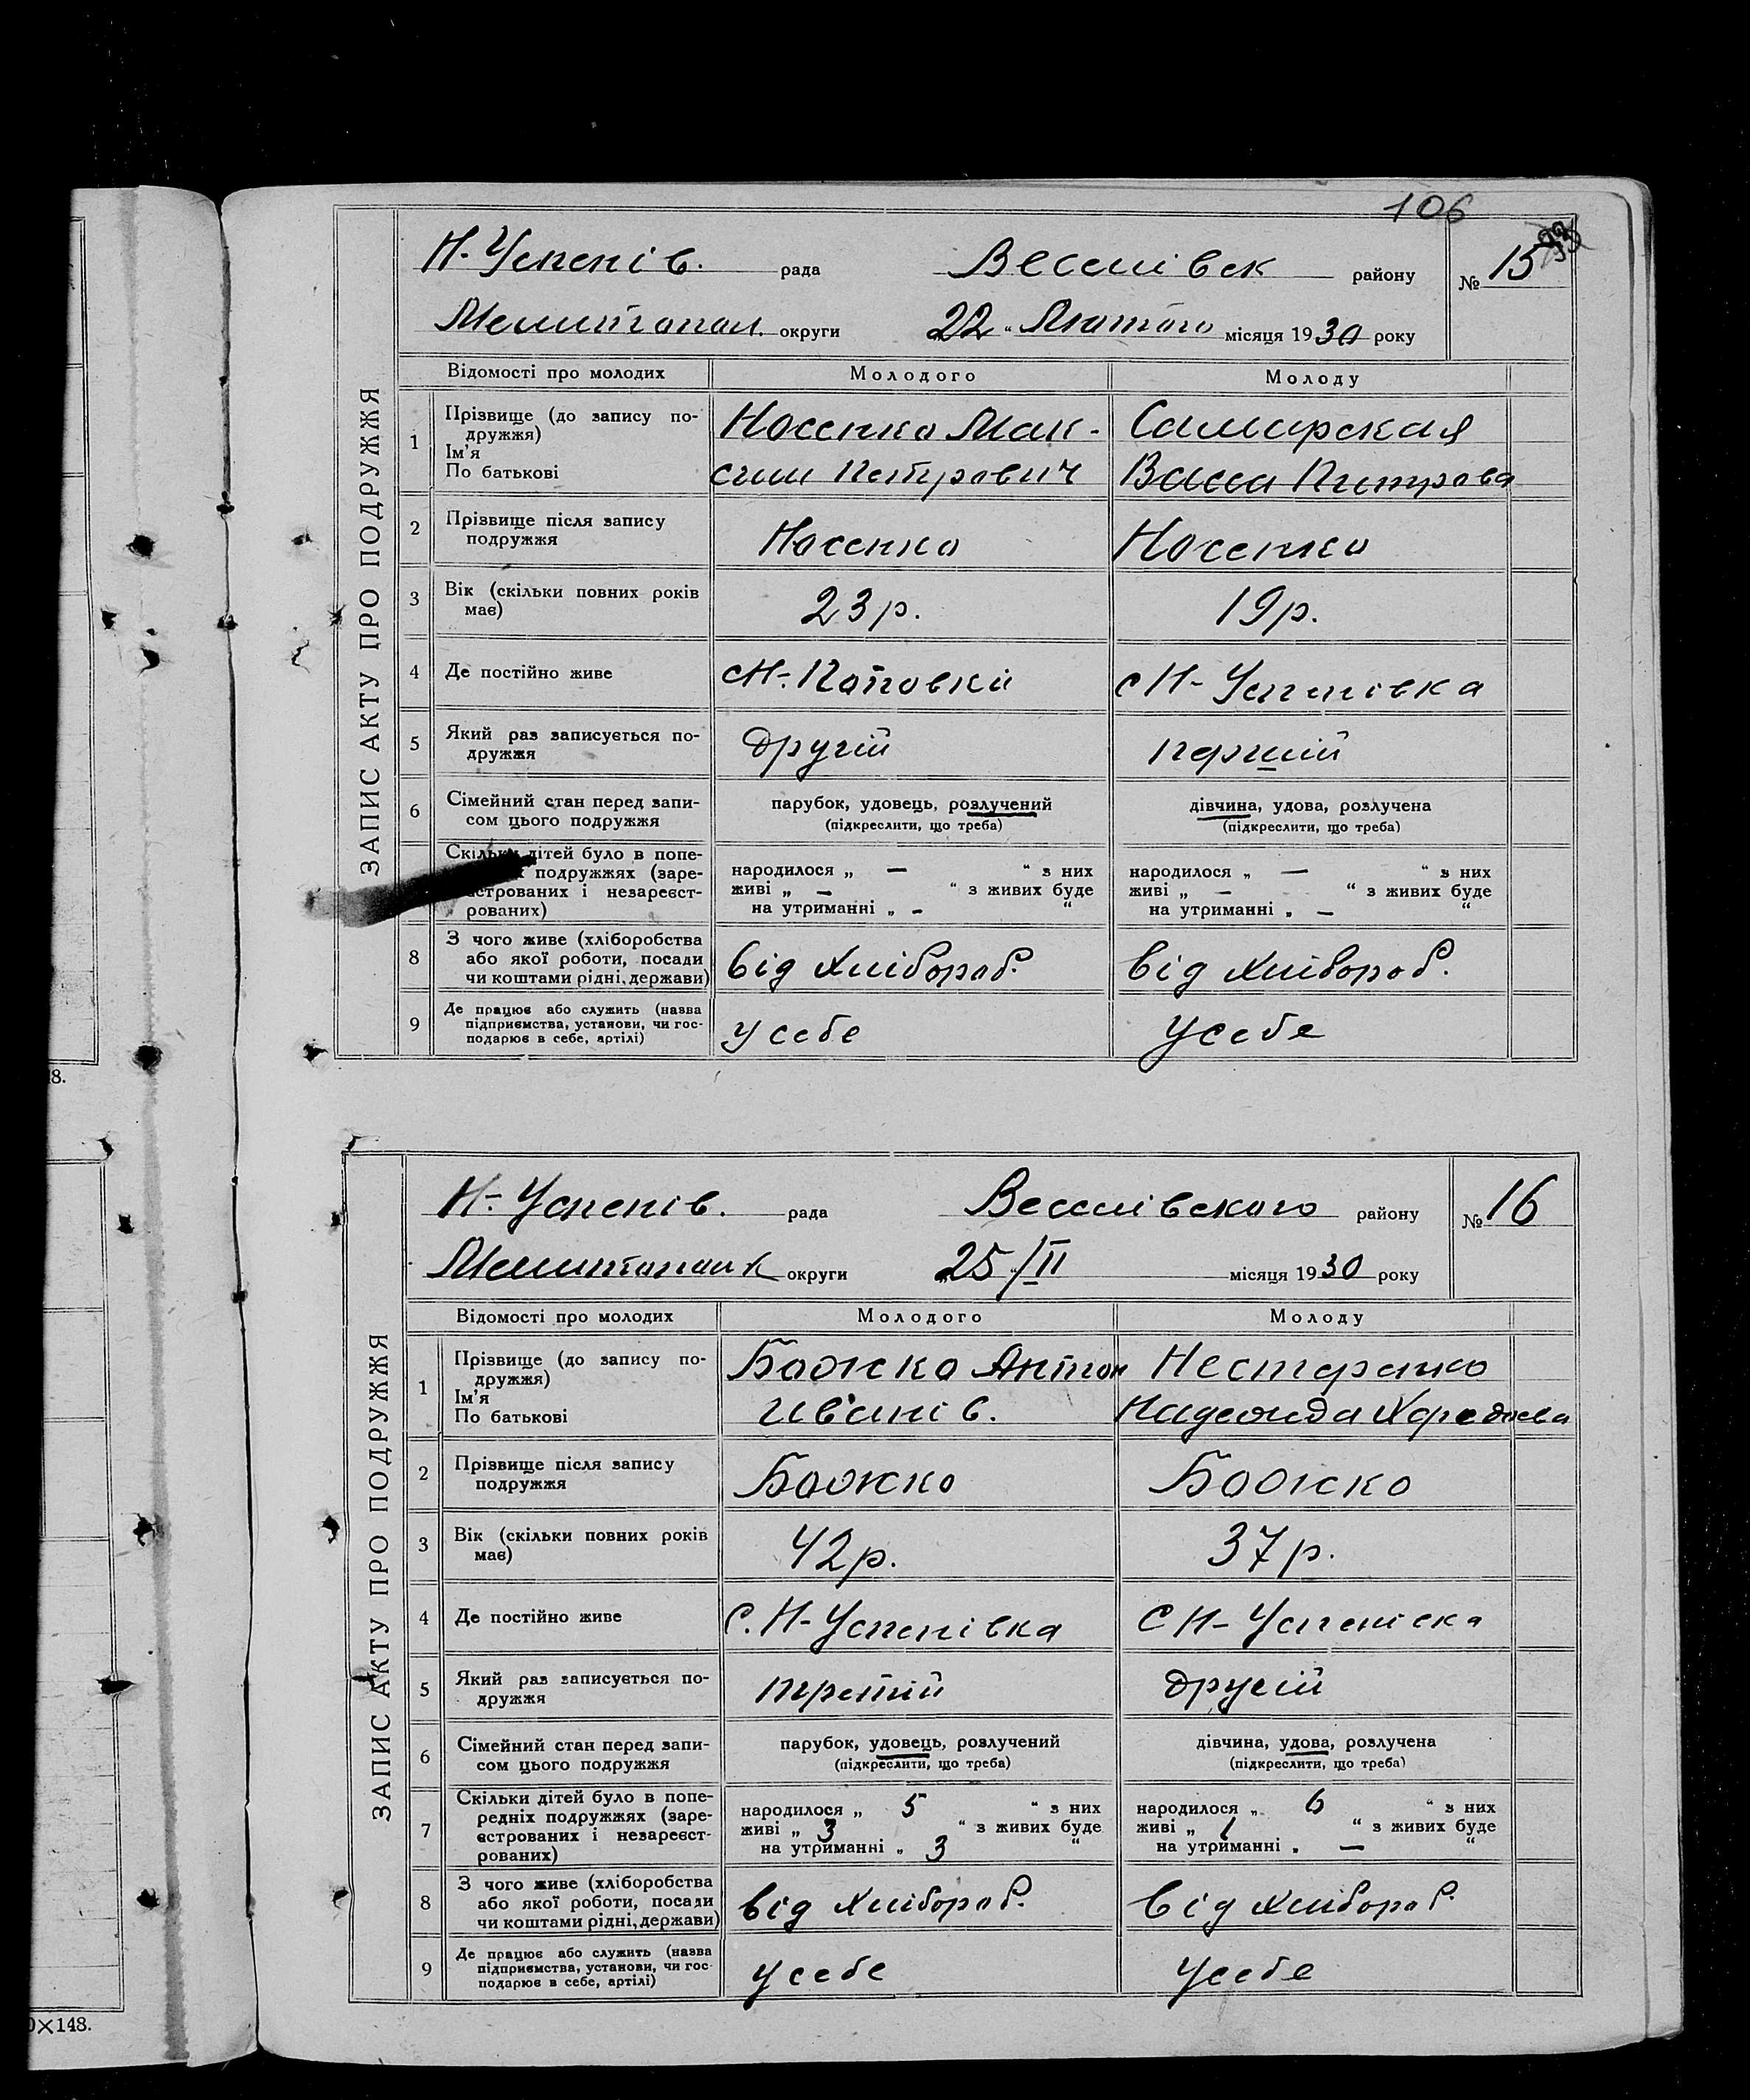 106
Н-Успенів. рада Веселівск району № 15
Мелитопол. округи „22“ Лютого місяця 1930 року
ЗАПИС АКТУ ПРО ПОДРУЖЖЯ
Відомості про молодих Молодого Молоду
1 Прізвище (до запису по-
дружжя)
Ім'я
По батькові
Носенко Мак-
сим Петрович
Самарская
Васса Питрова
2 Прізвище після запису
подружжя
Носенко Носенко
3 Вік (скільки повних років
має)
23 р. 19 р.
4 Де постійно живе с Н-Поповки с Н-Успенівка
5 Який раз записується по-
дружжя
другій першій
6 Сімейний стан перед запи-
сом цього подружжя
парубок, удовець, розлучений
(підкреслити, що треба)
дівчина, удова, розлучена
(підкреслити, що треба)
Скільки дітей було в попе-
подружжях (заре-
єстрованих і незареєст-
рованих)
народилося „ — “ з них
живі „ — “ з живих буде
на утриманні „ — “
народилося „ — “ з них
живі „ — “ з живих буде
на утриманні „ — “
8 З чого живе (хліборобства
або якої роботи, посади
чи коштами рідні, держави)
від хлібороб. від хлібороб.
9 Де працює або служить (назва
підприємства, установи, чи гос-
подарює в себе, артілі)
у себе у себе
Н-Успенів. рада Веселівского району № 16
Мелитопольк округи „25/II місяця 1930 року
ЗАПИС АКТУ ПРО ПОДРУЖЖЯ
Відомості про молодих Молодого Молоду
1 Прізвище (до запису по-
дружжя)
Ім'я
По батькові
Божко Антон
Иванів.
Нестеренко
Надежда
2 Прізвище після запису
подружжя
Божко Божко
3 Вік (скільки повних років
має)
42 р. 37 р.
4 Де постійно живе с. Н-Успенівка с Н-Успенівка
5 Який раз записується по-
дружжя
третій другій
6 Сімейний стан перед запи-
сом цього подружжя
парубок, удовець, розлучений
(підкреслити, що треба)
дівчина, удова, розлучена
(підкреслити, що треба)
7 Скільки дітей було в попе-
редніх подружжях (заре-
єстрованих і незареєст-
рованих)
народилося „ 5 “ з них
живі „ 3 “ з живих буде
на утриманні „ 3 “
народилося „ 6 “ з них
живі „ 1 “ з живих буде
на утриманні „ — “
8 З чого живе (хліборобства
або якої роботи, посади
чи коштами рідні, держави)
від хлібороб. від хлібороб
9 Де працює або служить (назва
підприємства, установи, чи гос-
подарює в себе, артілі)
у себе у себе
×148.